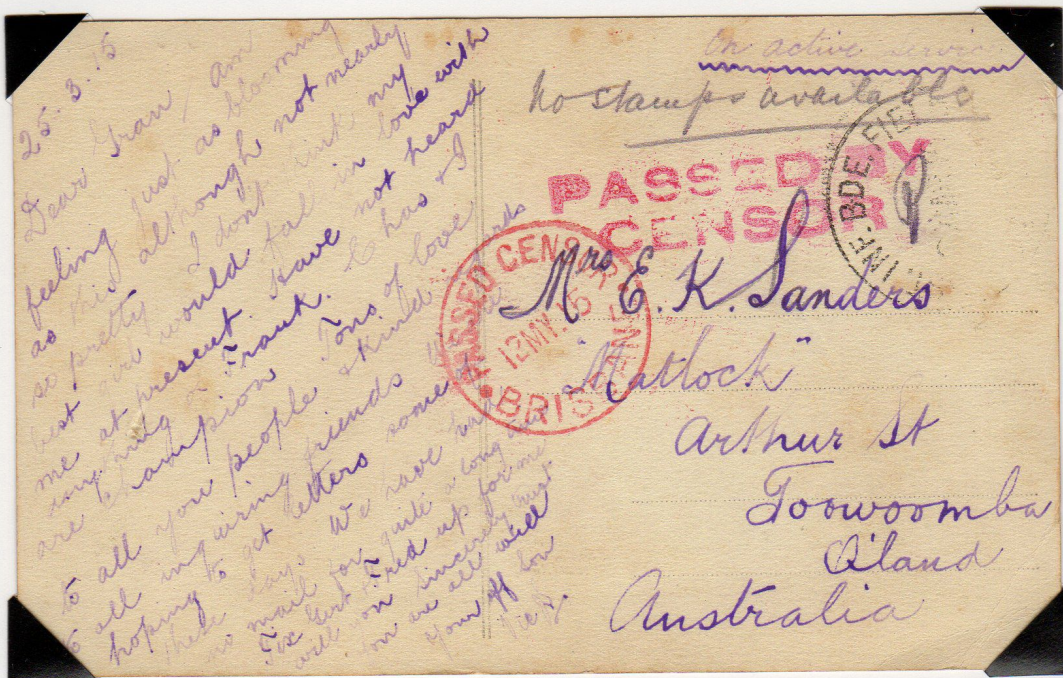 25.3.15
Dear Gran / Am
feeling just as blooming
as this although not nearly
so pretty I dont think my
best girl would fal in love with
me at present. Have not heard
anything of Frank. has & I
are champion Tons of love
to all you people & kind
to all inquiring friends
hoping to get letters some
these days. We have
no mail for quite a long
Tix Gert & Fred up for me
will sincerely
are all well
Your aff son
On active service
No stamps available
PASSED BY
CENSOR
INF. BDE. FIEL
PASSED CENSOR
12 MY. 15
BRISBANE
Mrs E. K. Sanders
"Matlock"
Arthur St
Toowoomba
Q'land
Australia